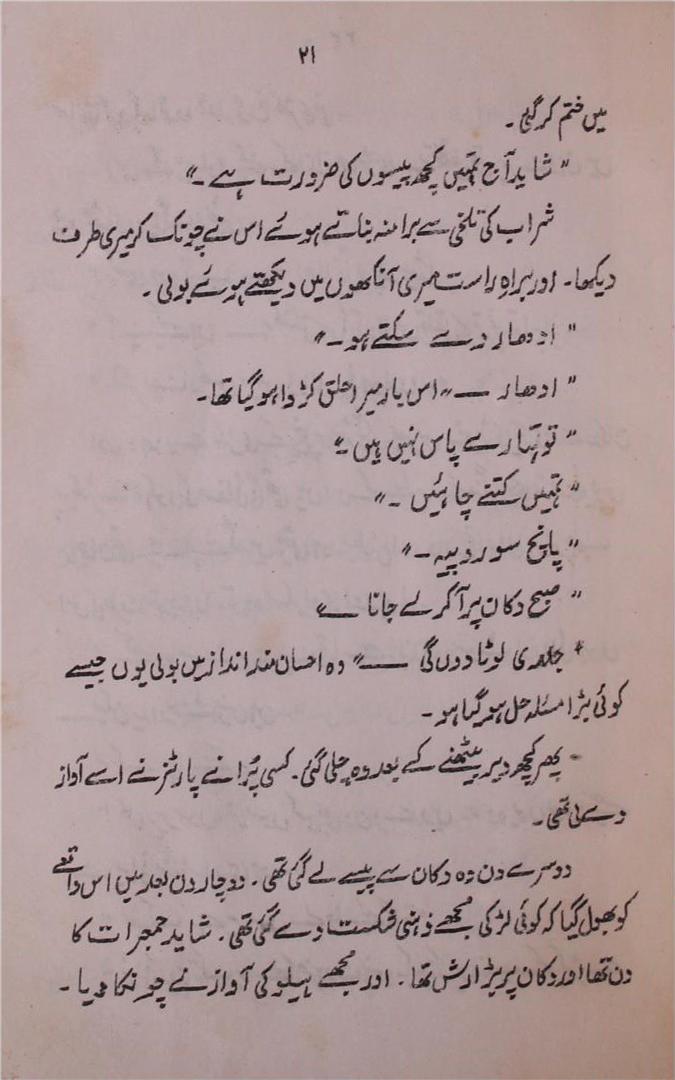 ۲۱
میں ختم کر گئی۔
"شاید آج تمہیں کچھ پیسوں کی ضرورت ہے۔"
شراب کی تلخی سے برا منہ بناتے ہوئے اس نے چونک کر میری طرف
دیکھا۔ اور براہِ راست میری آنکھوں میں دیکھتے ہوئے بولی۔
"ادھار دے سکتے ہو۔"
"ادھار —" اس بار میرا حلق کڑوا ہو گیا تھا۔
"تو تمہارے پاس نہیں ہیں۔"
"تمہیں کتنے چاہئیں۔"
"پانچ سو روپیہ۔"
"صبح دکان پر آ کر لے جانا —"
"جلدی لوٹا دوں گی —" وہ احسان مند انداز میں بولی یوں جیسے
کوئی بڑا مسئلہ حل ہو گیا ہو۔
۔ پھر کچھ دیر بیٹھنے کے بعد وہ چلی گئی۔ کسی پُرانے پارٹنر نے اسے آواز
دے لی تھی۔
دوسرے دن وہ دکان سے پیسے لے گئی تھی۔ دو چار دن بعد میں اس واقعے
کو بھول گیا کہ کوئی لڑکی مجھے ذہنی شکست دے گئی تھی۔ شاید جمعرات کا
دن تھا اور دکان پر بڑا رش تھا۔ اور مجھے ہیلو کی آواز نے چونکا دیا۔